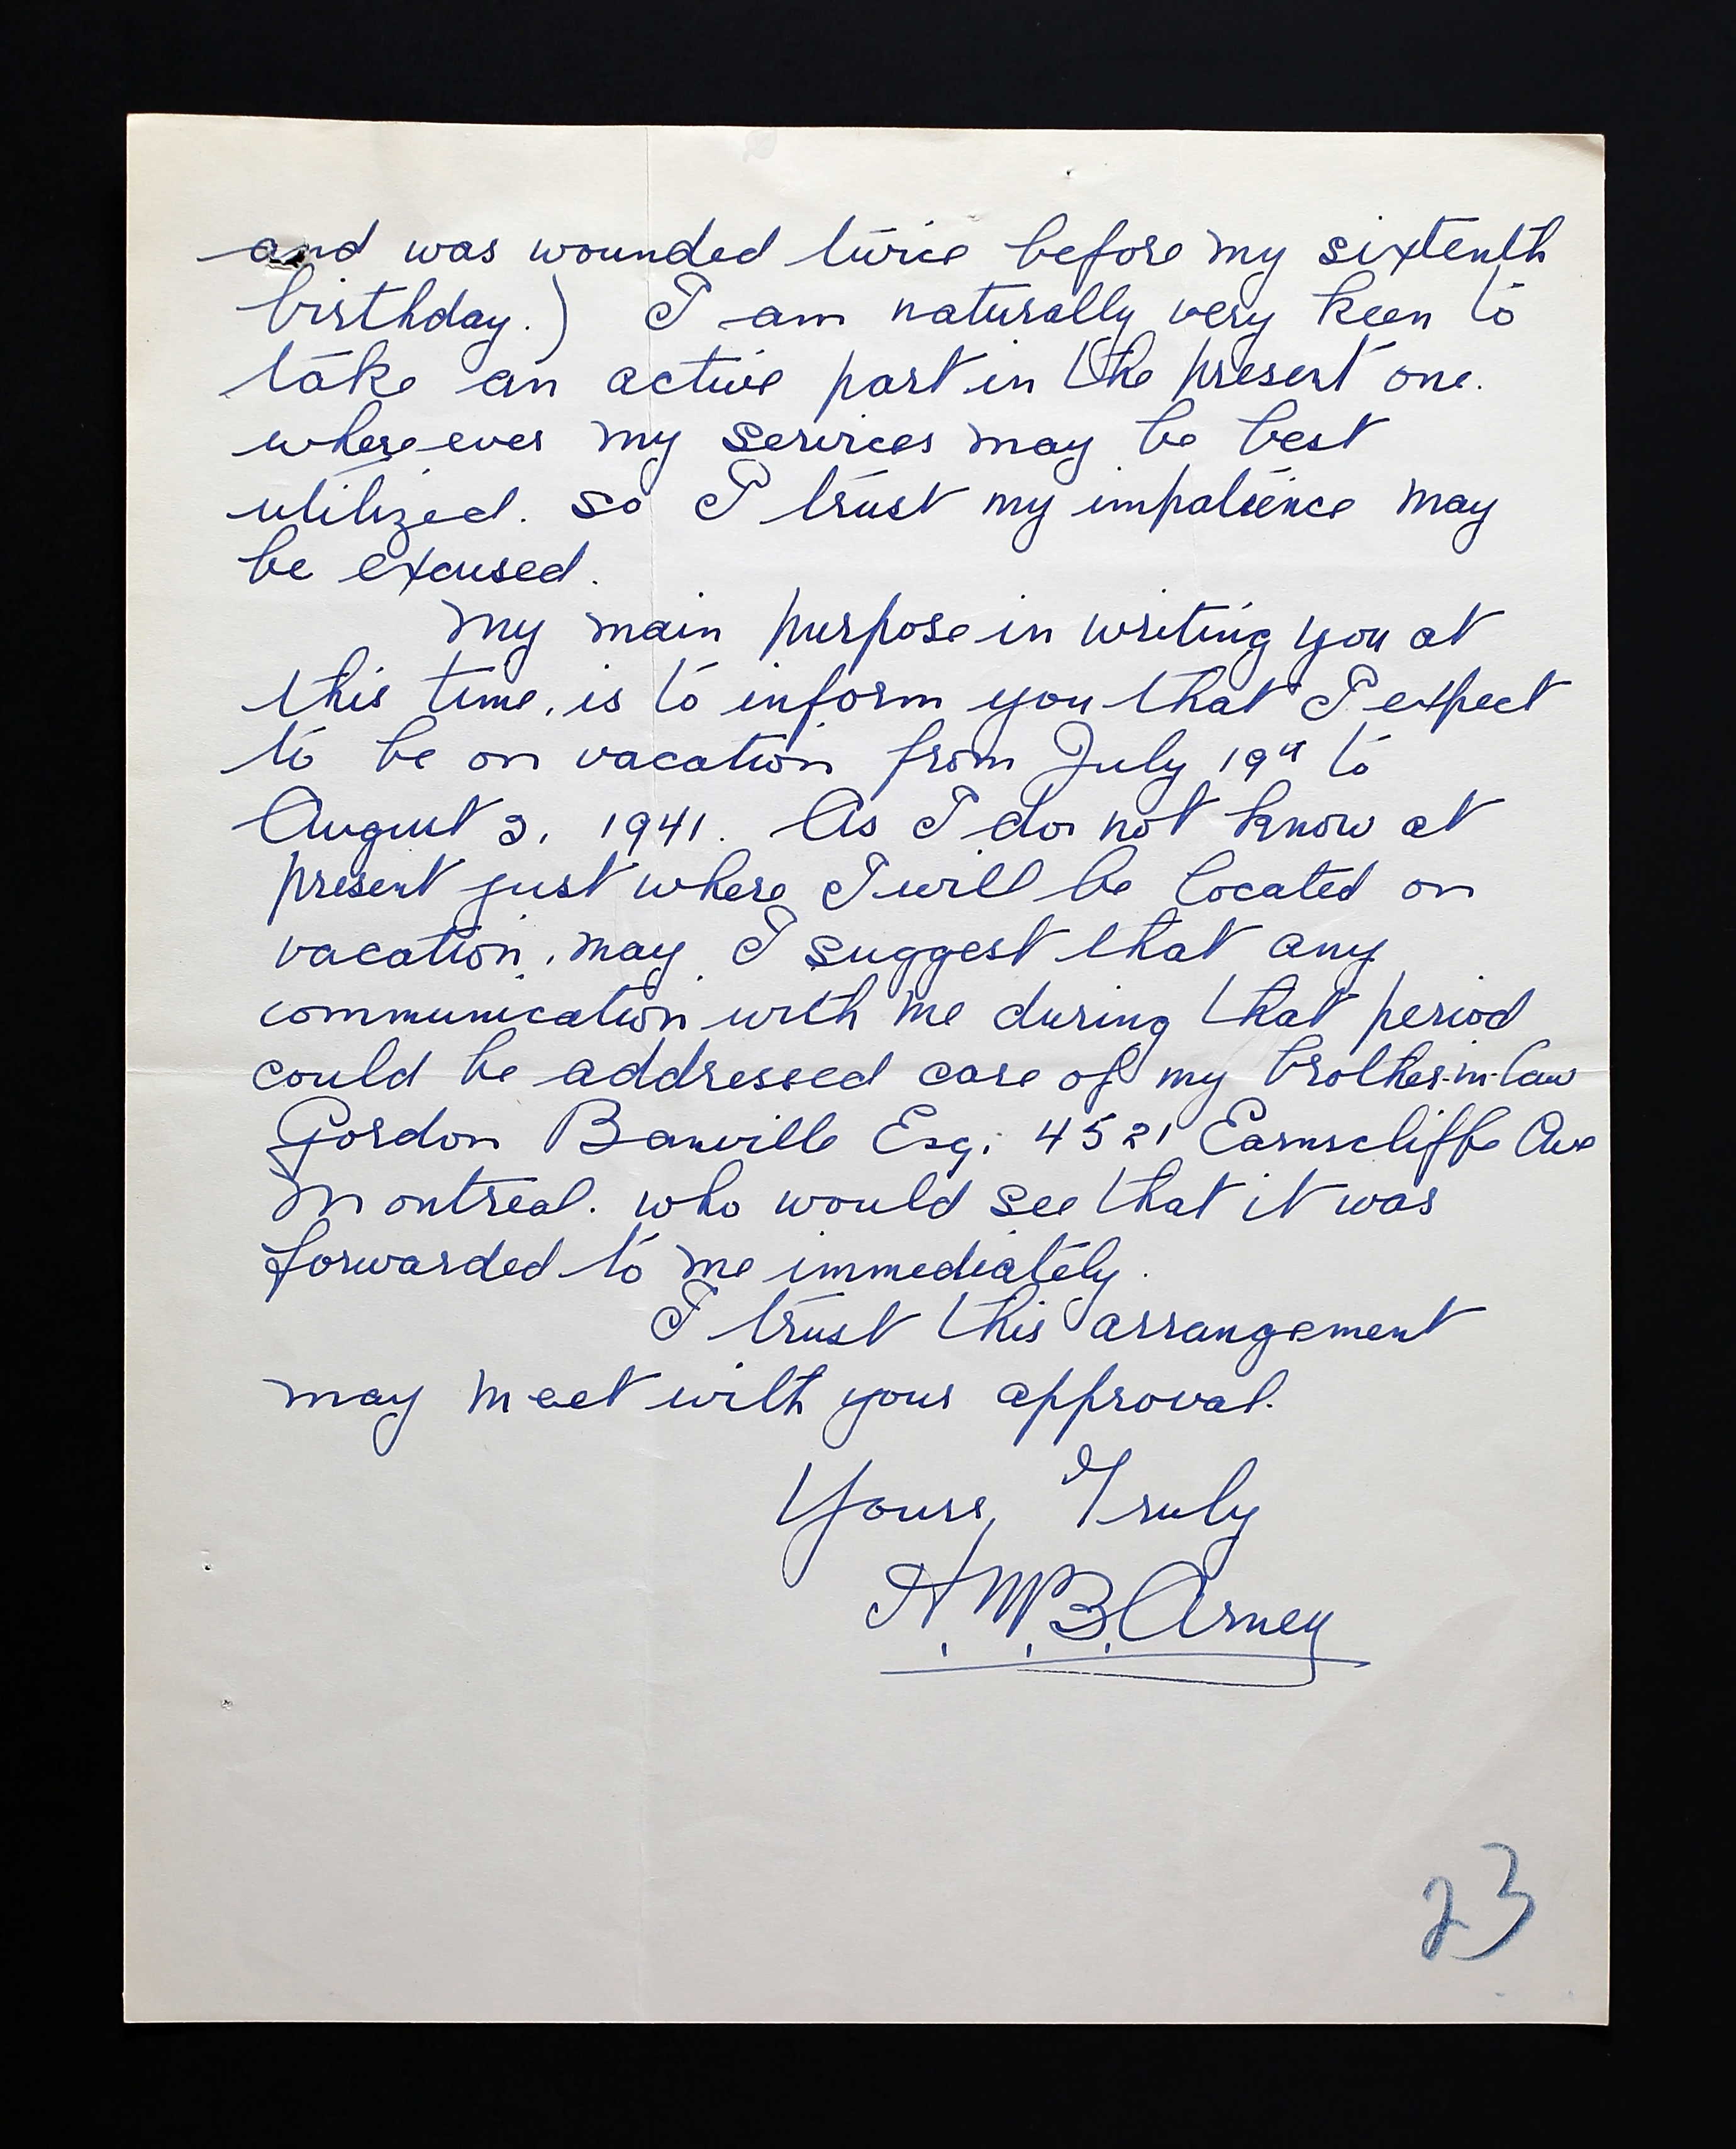 and was wounded twice before my sixtenth
birthday.) I am naturally very keen to
take an active part in the present one.
where ever my services may be best
utilized. so I trust my impatience may
be excused.
My main purpose in writing you at
this time, is to inform you that I expect
to be on vacation from July 19th to
August 3, 1941. As I do not know at
present just where I will be located on
vacation, may I suggest that any
communication with me during that period
could be addressed care of my brother-in-law
Gordon Banville Esq; 4521 Earnscliffe Ave
Montreal. who would see that it was
forwarded to me immediately.
I trust this arrangement
may meet with your approval.
Yours, Truly
H.M.B. Arney
23